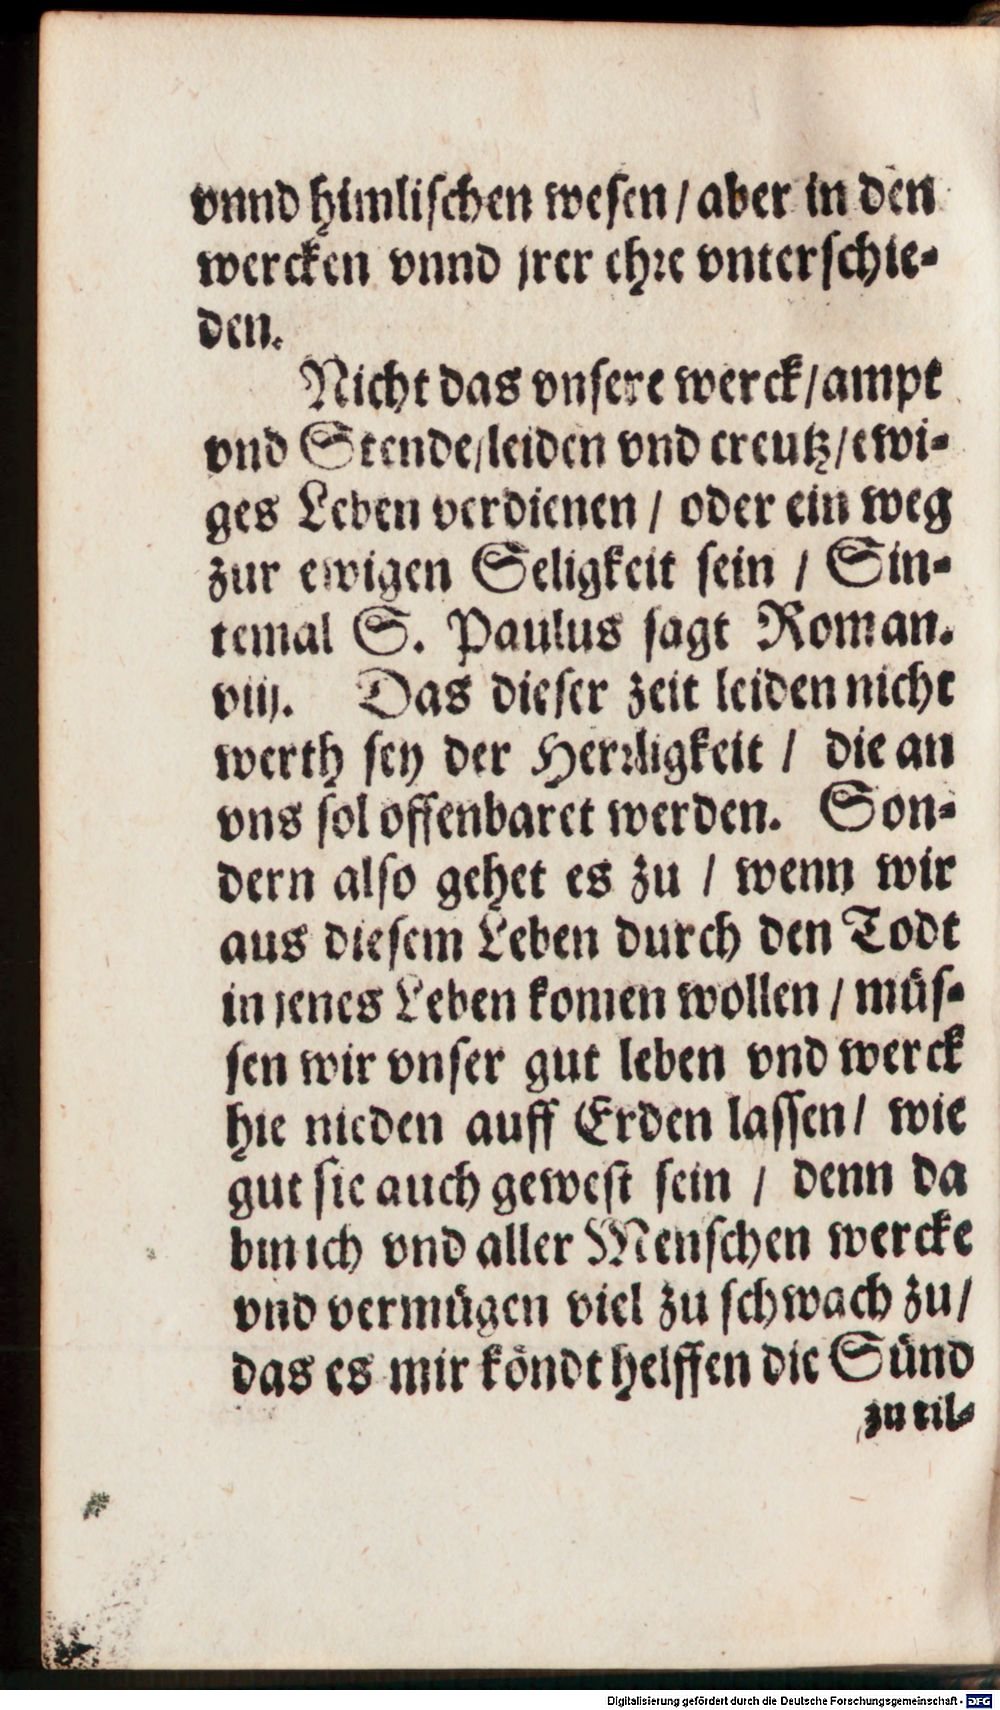 vnnd himlischen wesen / aber in den
wercken vnnd jrer ehre vnterschie-
den.
Nicht das vnsere werck / ampt
vnd Stende / leiden vnd creutz / ewi-
ges Leben verdienen / oder ein weg
zur ewigen Seligkeit sein / Sin-
temal S. Paulus sagt Roman.
viij. Das dieser zeit leiden nicht
werth sey der Herrligkeit / die an
vns sol offenbaret werden. Son-
dern also gehet es zu / wenn wir
aus diesem Leben durch den Todt
in jenes Leben komen wollen / müs-
sen wir vnser gut leben vnd werck
hie nieden auff Erden lassen / wie
gut sie auch gewest sein / denn da
bin ich vnd aller Menschen wercke
vnd vermügen viel zu schwach zu /
das es mir köndt helffen die Sünd
zu til-
Digitalisierung gefördert durch die Deutsche Forschungsgemeinschaft - DFG